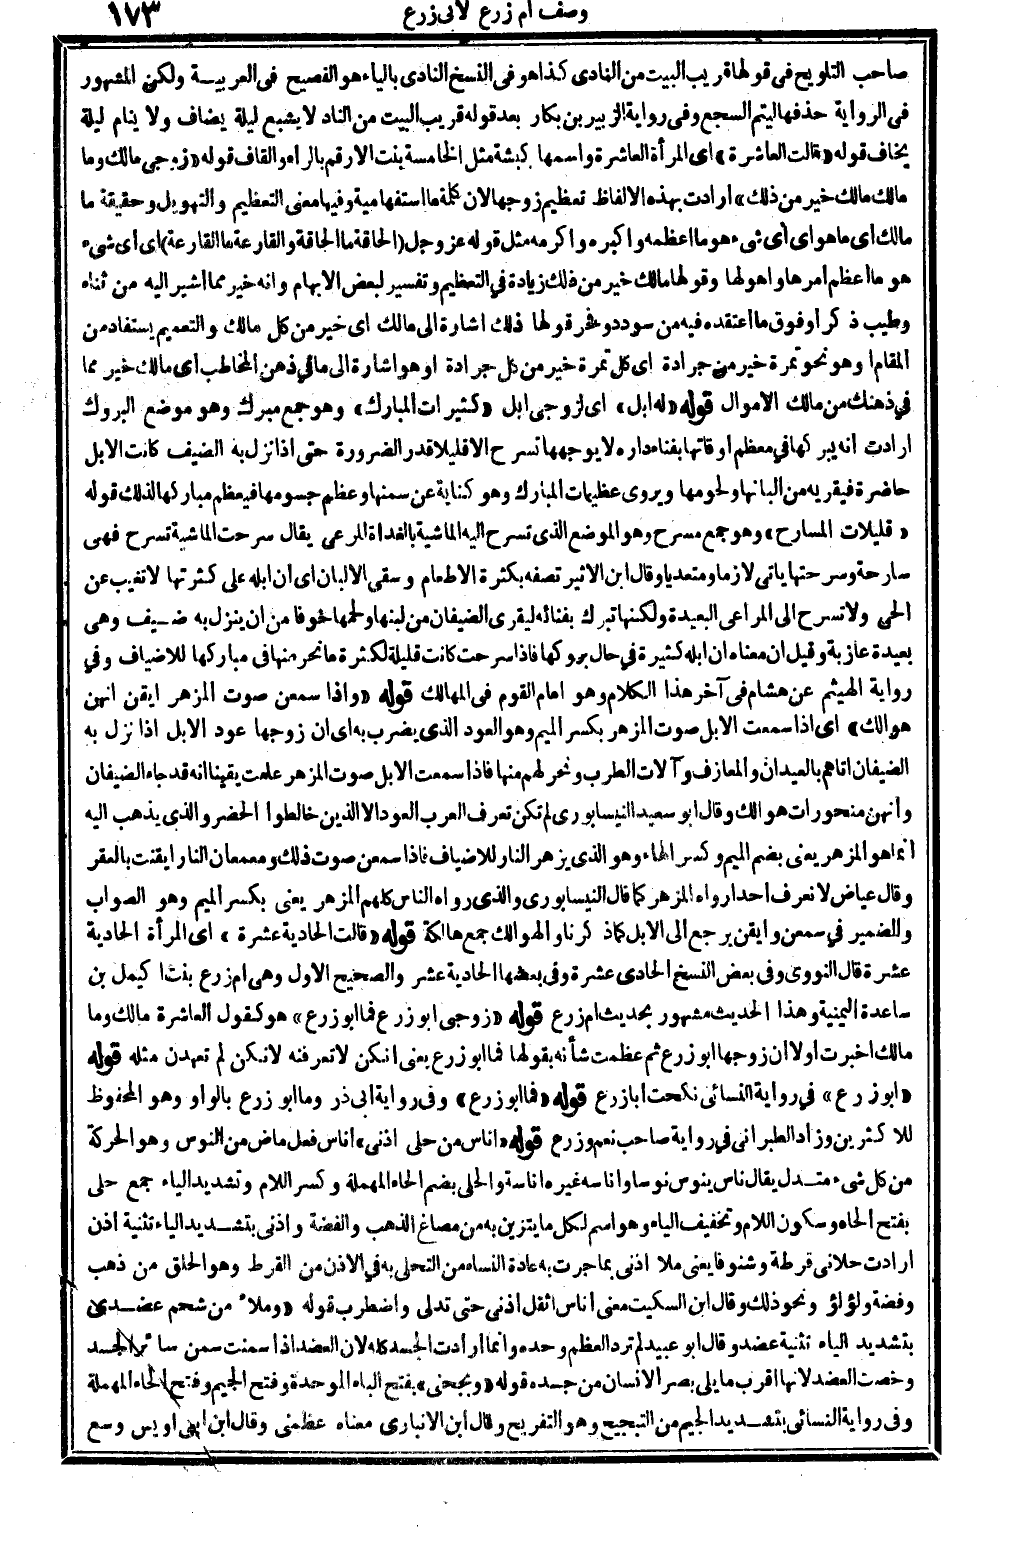 وصف أم زرع لابى زرع ١٧٣
صاحب التلويح فى قولها قريب البيت من النادى كذا هو فى النسخ النادى بالياء هو الفصيح فى العربيـة ولكن المشهور
فى الرواية حذفها ليتم السجع وفى رواية الزبير بن بكار بعد قوله قريب البيت من الناد لا يشبع ليلة يضاف ولا ينام ليلة
يخاف قوله «قالت العاشرة» اى المرأة العاشرة واسمها كبشة مثل الخامسة بنت الارقم بالراء والقاف قوله «زوجى مالك وما
مالك مالك خير من ذلك» ارادت بهذه الالفاظ تعظيم زوجها لان كلمة ما استفهامية وفيها معنى التعظيم والتهويل وحقيقة ما
مالك أى ما هو اى أى شىء هو ما اعظمه واكبره واكرمه مثل قوله عز وجل (الحاقة ما الحاقة والقارعة ما القارعة) اى أى شىء
هو ما أعظم أمرها واهولها وقولها مالك خير من ذلك زيادة في التعظيم وتفسير لبعض الابهام وانه خير مما أشير اليه من ثناء
وطيب ذكر أو فوق ما أعتقده فيه من سودد وفخر قولها ذلك اشارة الى مالك اى خير من كل مالك والتعميم يستفاد من
المقام او هو نحو تمرة خير من جرادة اى كل تمرة خير من كل جرادة او هو اشارة الى ما في ذهن المخاطب أى مالك خير مما
في ذهنك من مالك الاموال قوله «له ابل» اى لزوجى ابل «كثيرات المبارك» وهو جمع مبرك وهو موضع البروك
ارادت انه يبركها في معظم أوقاتها بفناء داره لا يوجهها تسرح الا قليلا قدر الضرورة حتى اذا نزل به الضيف كانت الابل
حاضرة فيقريه من البانها ولحومها ويروى عظيمات المبارك وهو كناية عن سمنها وعظم جسومها فيعظم مباركها لذلك قوله
«قليلات المسارح» وهو جمع مسرح وهو الموضع الذى تسرح اليه الماشية بالغداة للرعى يقال سرحت الماشية تسرح فهى
سارحة وسرحتها يأتى لازما ومتعديا وقال ابن الاثير تصفه بكثرة الاطعام وسقى الالبان اى ان ابله على كثرتها لا تغيب عن
الحى ولا تسرح الى المراعى البعيدة ولكنها تبرك بفنائه ليقرى الضيفان من لبنها ولحمها خوفا من ان ينزل به ضـيف وهى
بعيدة عازبة وقيل ان معناه ان ابله كثيرة في حال بروكها فاذا سرحت كانت قليلة لكثرة ما نحر منها فى مباركها للاضياف وفي
رواية الهيثم عن هشام فى آخر هذا الكلام وهو امام القوم فى المهالك قوله «واذا سمعن صوت المزهر ايقن انهن
هوالك» أى اذا سمعت الابل صوت المزهر بكسر الميم وهو العود الذى يضرب به اى ان زوجها عود الابل اذا نزل به
الضيفان اتاهم بالعيدان والمعازف وآلات الطرب ونحر لهم منها فاذا سمعت الابل صوت المزهر علمت يقينا انه قد جاء الضيفان
وأنهن منحورات هوالك وقال ابو سعيد النيسابورى لم تكن تعرف العرب العود الا الذين خالطوا الحضر والذى يذهب اليه
انما هو المزهر يعنى بضم الميم وكسر الهاء وهو الذى يزهر النار للاضياف فاذا سمعن صوت ذلك ومعمعان النار ايقنت بالعقر
وقال عياض لا نعرف احدا رواه المزهر كما قال النيسابورى والذى رواه الناس كلهم المزهر يعنى بكسر الميم وهو الصواب
والضمير في سمعن وايقن يرجع الى الابل كما ذكرنا والهوالك جمع هالكة قوله «قالت الحادية عشرة» اى المرأة الحادية
عشرة قال النووى وفى بعض النسخ الحادى عشرة وفى بعضها الحادية عشر والصحيح الاول وهى ام زرع بنت اكيمل بن
ساعدة اليمنية وهذا الحديث مشهور بحديث ام زرع قوله «زوجى ابو زرع فما ابو زرع» هو كقول العاشرة مالك وما
مالك اخبرت اولا ان زوجها ابو زرع ثم عظمت شأنه بقولها فما ابو زرع يعنى انكن لا تعرفنه لانكن لم تعهدن مثله قوله
«ابو زرع» في رواية النسائى نكحت ابا زرع قوله «فما ابو زرع» وفى رواية ابى ذر وما ابو زرع بالواو وهو المحفوظ
للاكثرين وزاد الطبرانى في رواية صاحب نعم وزرع قوله «اناس من حلى اذنى» اناس فعل ماض من النوس وهو الحركة
من كل شىء متـدل يقال ناس ينوس نوسا واناسه غيره اناسة والحلى بضم الحاء المهملة وكسر اللام وتشديد الياء جمع حلى
بفتح الحاء وسكون اللام وتخفيف الياء وهو اسم لكل ما يتزين به من مصاغ الذهب والفضة واذنى بتشـديد الياء تثنية اذن
ارادت حلانى قرطة وشنوفا يعنى ملا اذنى بما جرت به عادة النساء من التحلى به في الاذن من القرط وهو الحلق من ذهب
وفضة ولؤلؤ ونحو ذلك وقال ابن السكيت معنى أناس اثقل أذنى حتى تدلى واضطرب قوله «وملأ من شحم عضـدى»
بتشديد الياء تثنية عضد وقال ابو عبيد لم ترد العظم وحده وانما أرادت الجسد كله لان العضد اذا سمنت سمن سائر الجسد
وخصت العضد لانها اقرب ما يلى بصر الانسان من جسده قوله «وبجحنى» بفتح الباء الموحدة وفتح الجيم وفتح الحاء المهملة
وفى رواية النسائى بتشـديد الجيم من التبجيح وهو التفريح وقال ابن الانبارى معناه عظمنى وقال ابن ابى اويس وسع